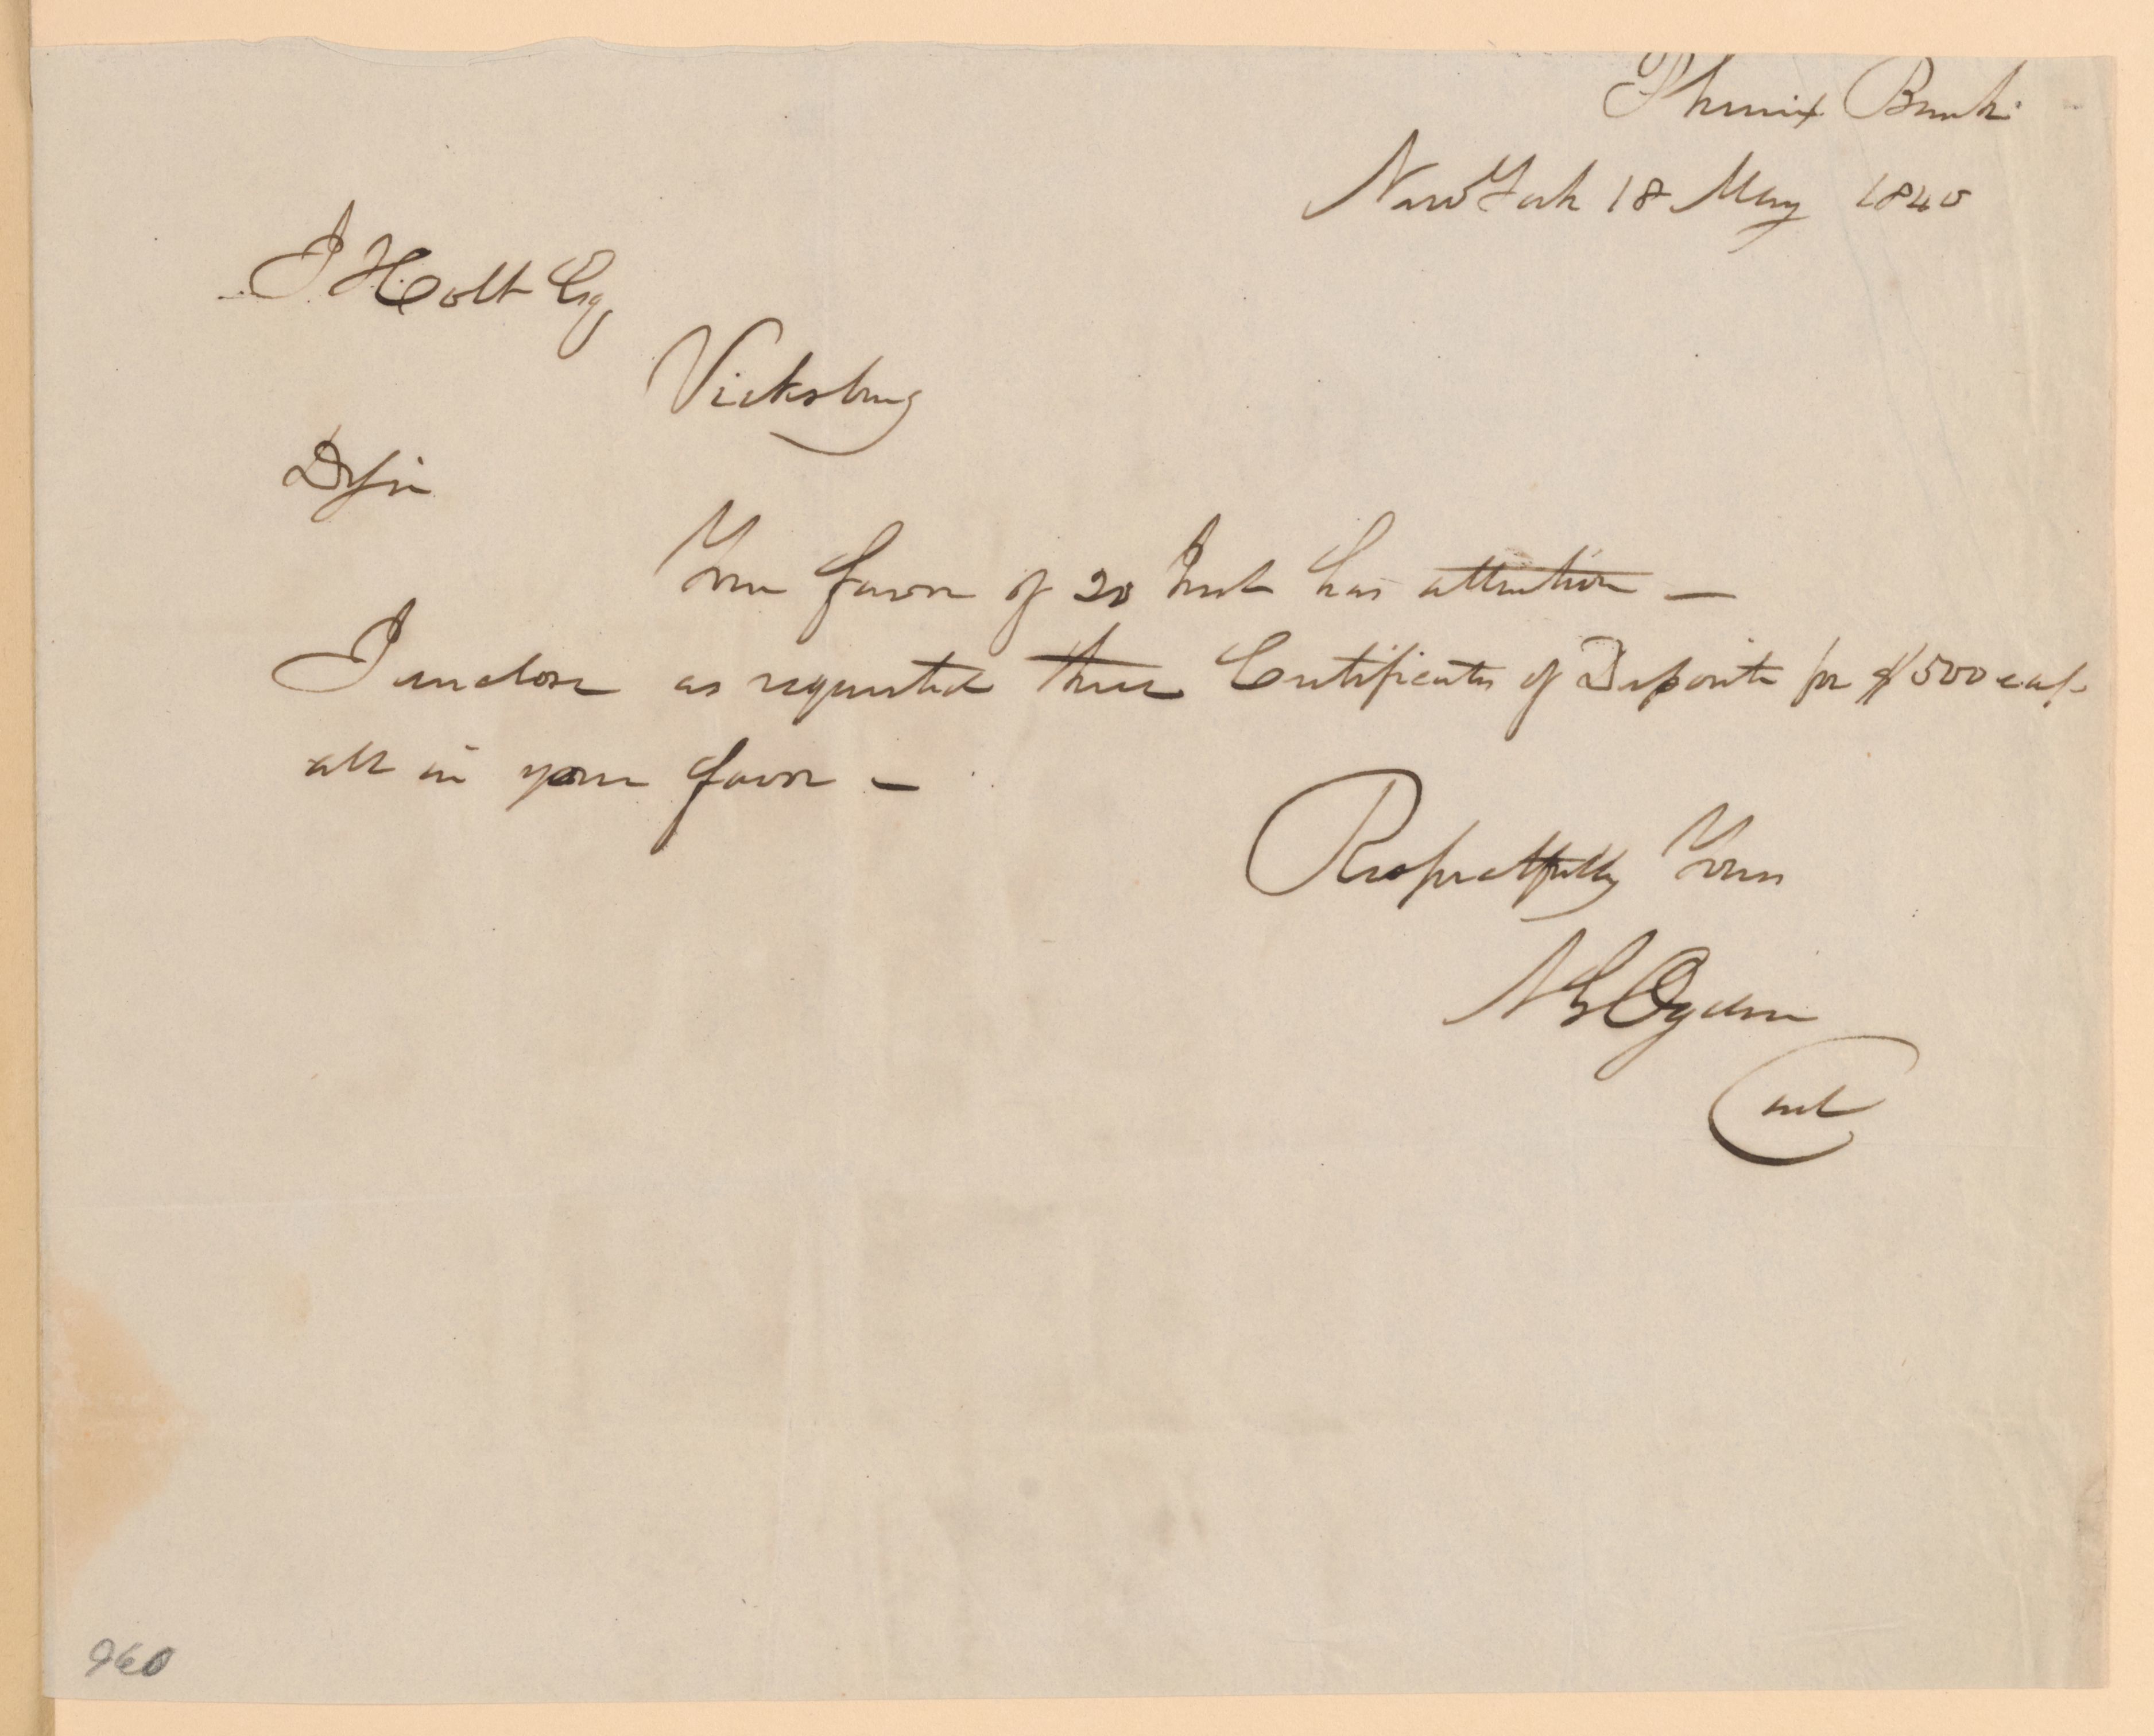 Phenix Bank
New York 18 May 1840
J Holt Esq
Vicksburg
D Sir
Your favor of 20 Inst has attention —
I enclose as requested three Certificates of Deposits for $500 each
all in your favor —
Respectfully Yours
N G Ogden
Cash
960